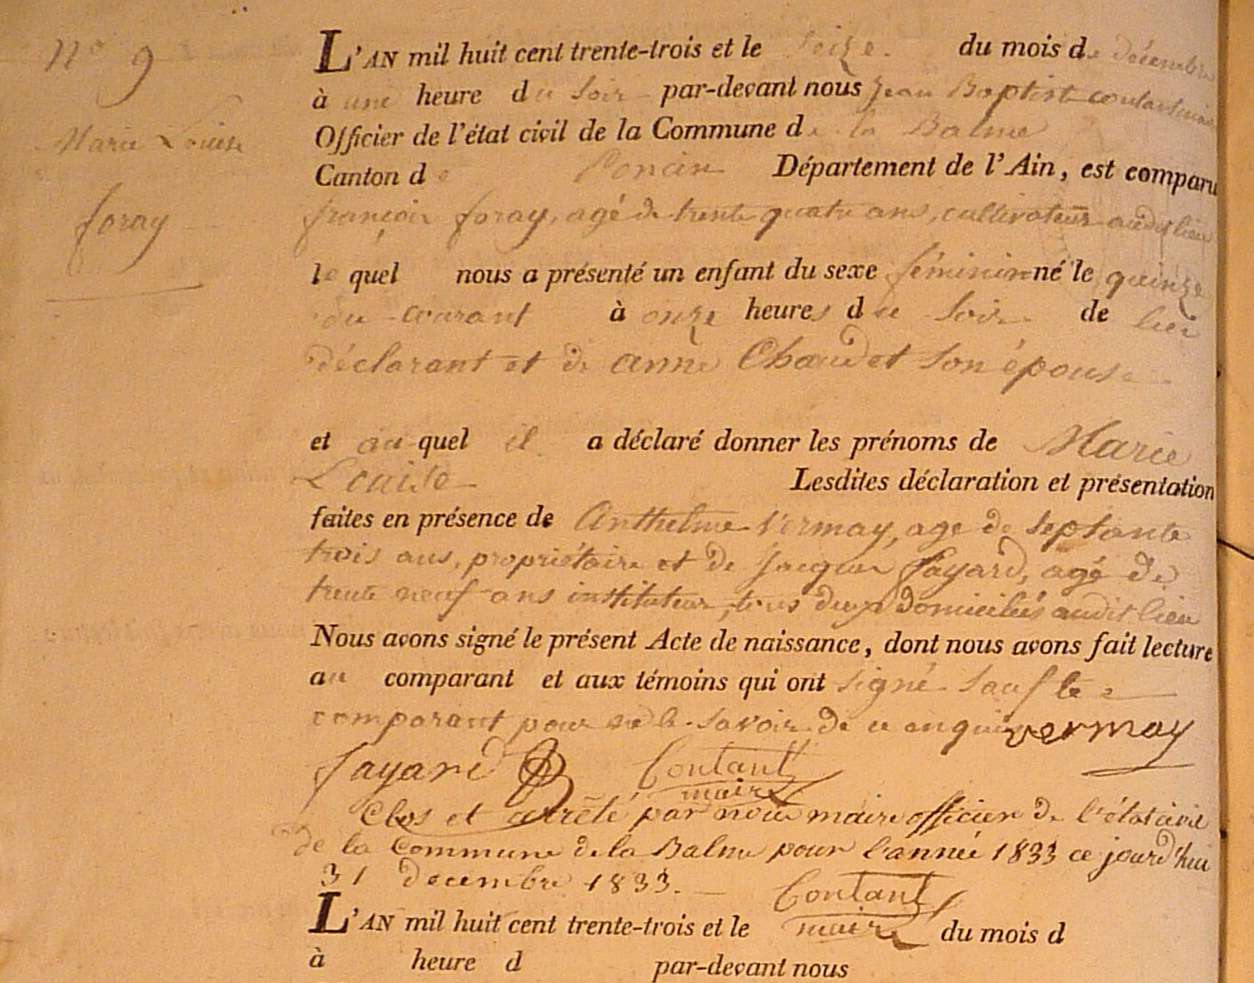 N° 9
Marie Louise
foray
L'AN mil huit cent trente-trois et le seize du mois de décembre
à une heure du soir par-devant nous jean Baptiste contant maire
Officier de l'état civil de la Commune de la Balme
Canton de Poncin Département de l'Ain, est comparu
françois foray, agé de trente quatre ans, cultivateur audit lieu
le quel nous a présenté un enfant du sexe féminin né le quinze
du courant à onze heures du soir de lui
déclarant et de anne Chaudet son épouse
et au quel il a déclaré donner les prénoms de Marie
Louise Lesdites déclaration et présentation
faites en présence de Anthelme Vermay, age de septante
trois ans, propriétaire et de jacques fayard, agé de
trente neuf ans instituteur, tous deux domiciliés audit lieu
Nous avons signé le présent Acte de naissance, dont nous avons fait lecture
au comparant et aux témoins qui ont signé sauf le
comparant pour ne le savoir de ce enquis vermay
fayard Contant
maire
Clos et arrêté par nous maire officier de l'état civil
de la Commune de la Balme pour l'année 1833 ce jourd'hui
31 decembre 1833. Contant
maire
L'AN mil huit cent trente-trois et le du mois d
à heure d par-devant nous